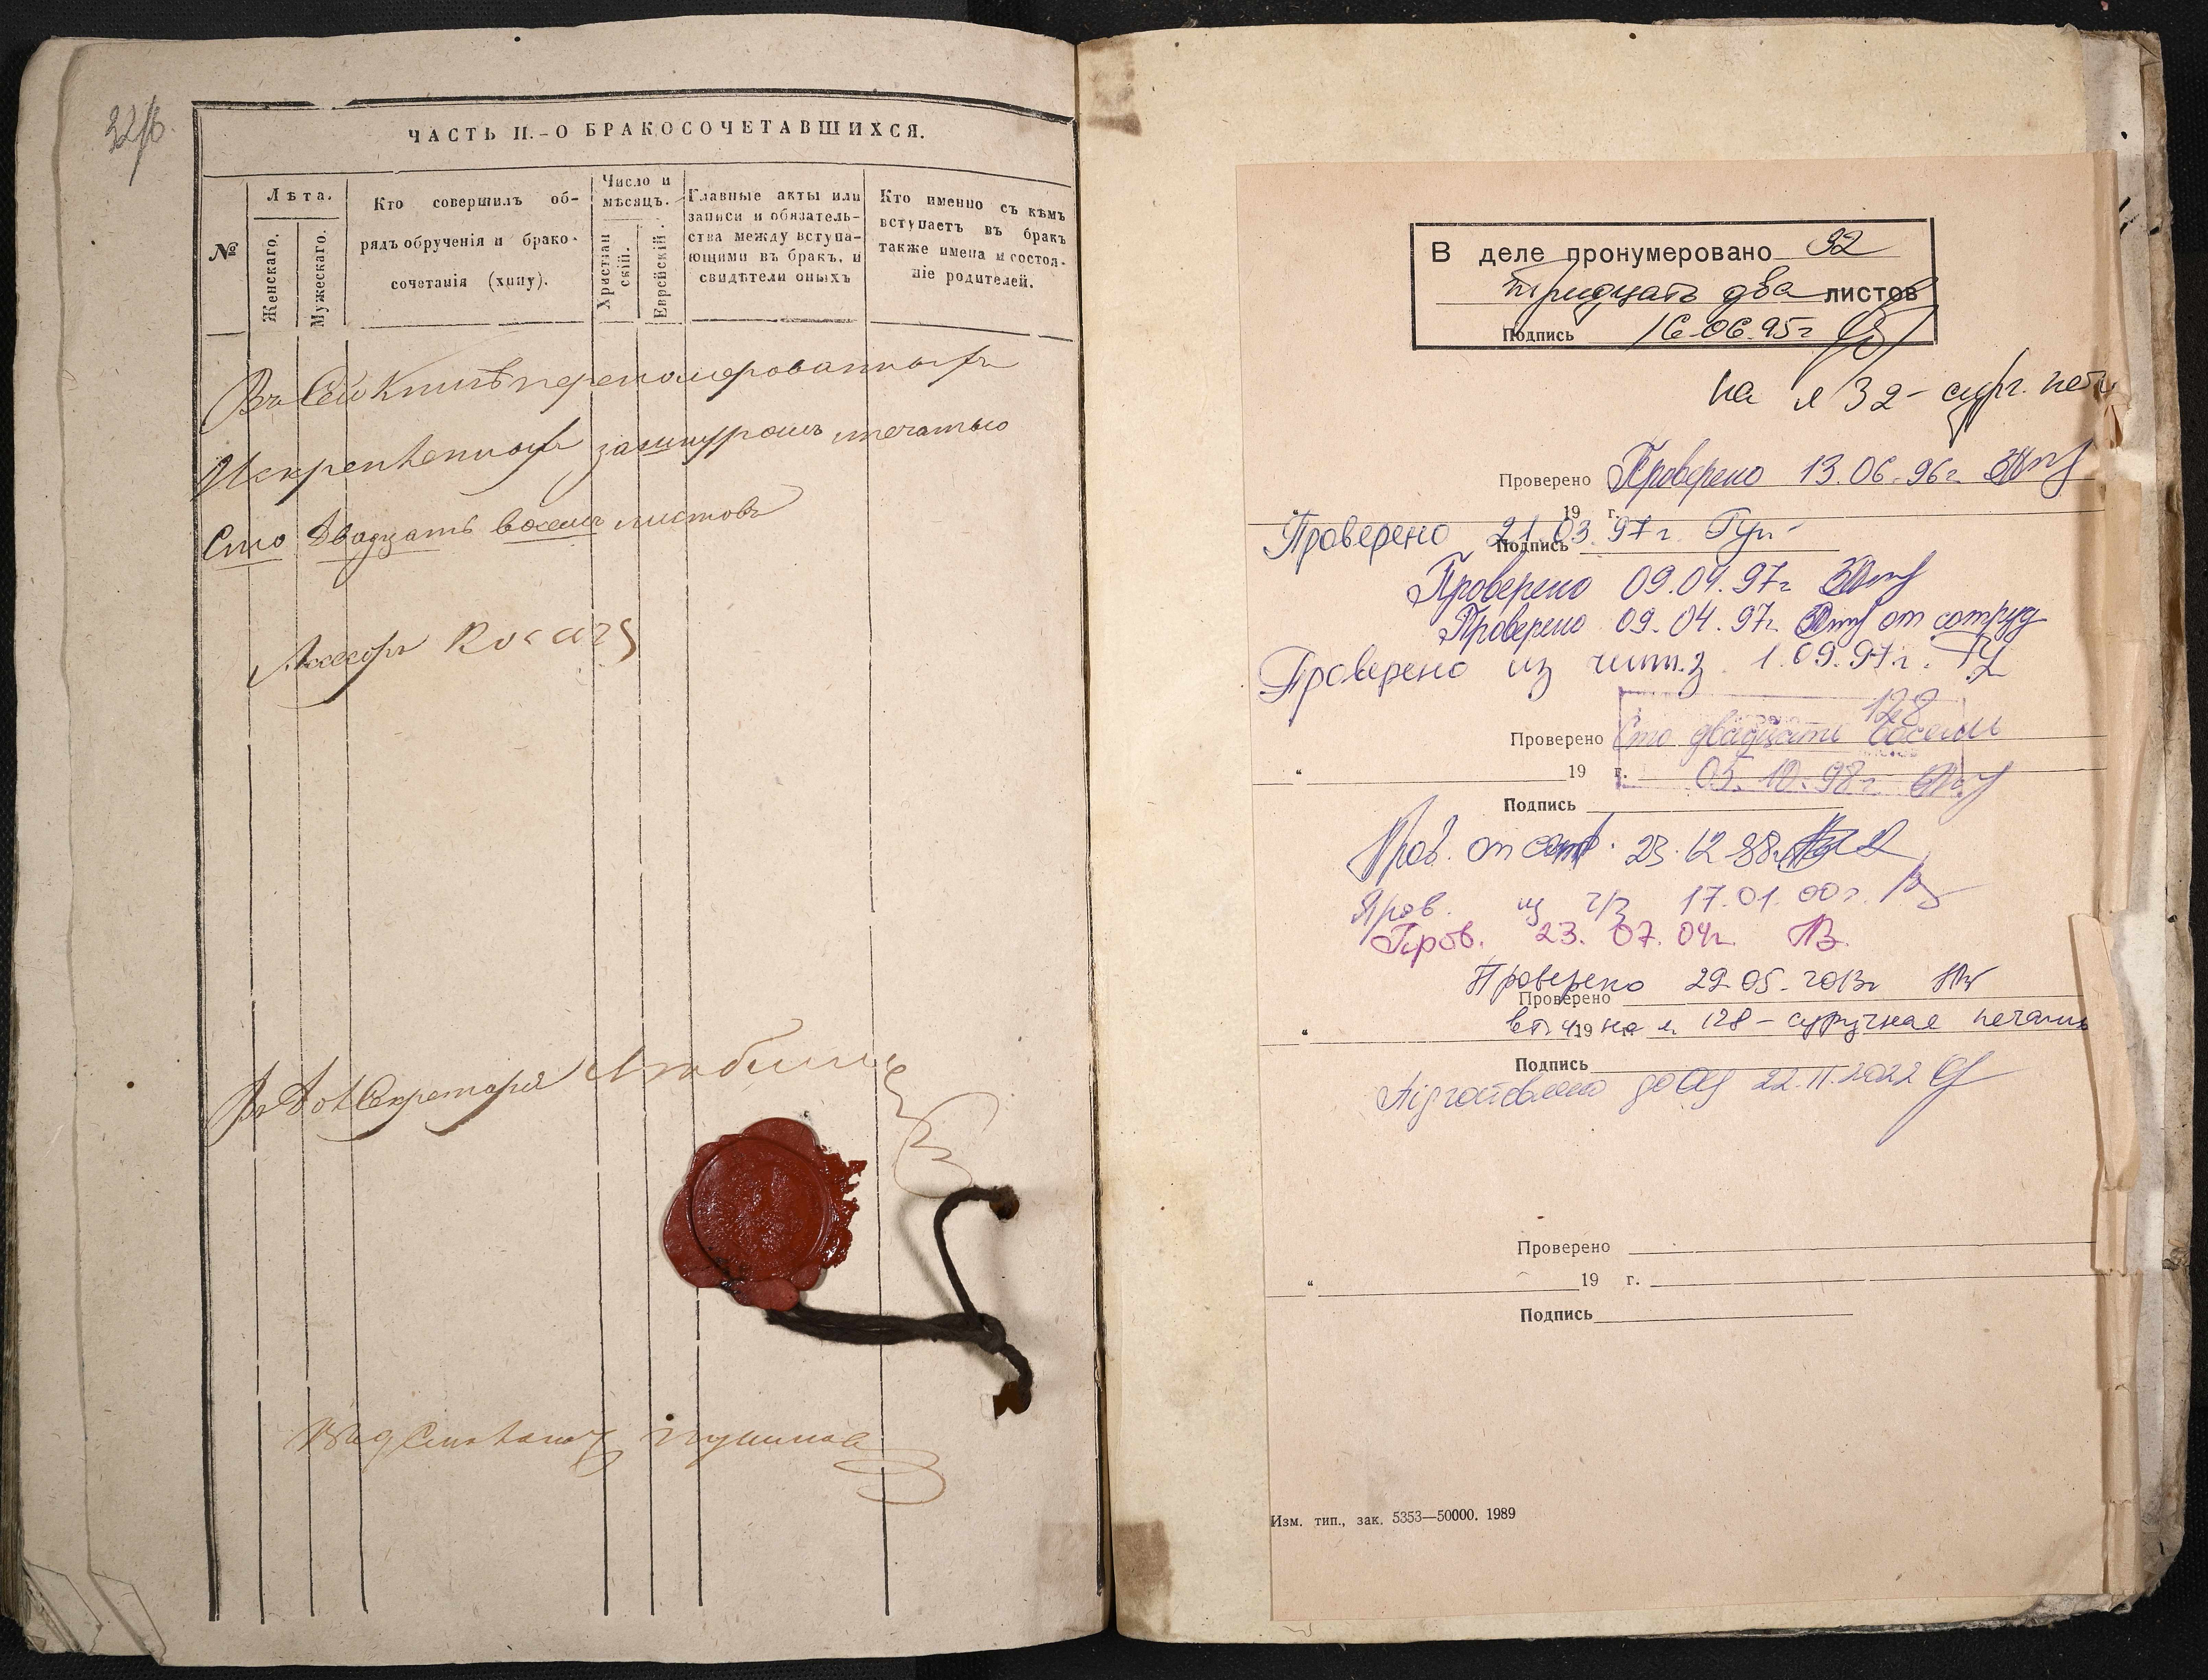 ЧАСТЬ II.-О БРАКОСОЧЕТАВШИХСЯ.
№
Лѣта.
Женскаго.
Мужескаго.
Кто совершилъ об-
рядъ обрученія и брако-
сочетанія (хупу).
Число и
мѣсяцъ.
Христіан
скій.
Еврейскій.
Главные акты или
записи и обязатель-
ства между вступа-
ющими въ бракъ, и
свидѣтели оныхъ
Кто именно съ кѣмъ
вступаетъ въ бракъ
также имена и состоя-
ніе родителей.
Въ Сей Книгѣ перенумерованныхъ
Искрепленныхъ зашнуромъ ипечатью
Сто Двадцать восемь листовъ
Ассесоръ
Секретаря
В деле пронумеровано 32
тридцать два листов
Подпись 16.06.95г
на л 32- сург. печ
Проверено Проверено 13.06.96г
19 г.
Проверено 21.03.97г
Подпись
Проверено 09.04.97г
Проверено 09.04.97г от сотруд
Проверено из чит.з 1.09.97г.
128
Проверено Сто двадцать восемь
" 19 г. 05.10.98г
Подпись
Пров. от сот. 23.12.98г
Пров. из ч/з 17.01.00г.
Пров. 23.07.04г.
Проверено 29.05.2013г
Проверено
" 19 в т.ч. на л. 128 - сургучная печать
Подпись
Підготовлено до 22.11.2022
Проверено
" 19 г.
Подпись
Изм. тип., зак. 5353—50000. 1989